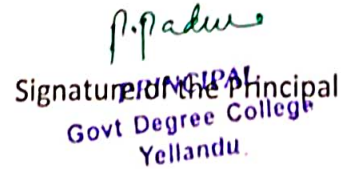 P. Padma
Signature of the Principal
PRINCIPAL
Govt Degree College
Yellandu